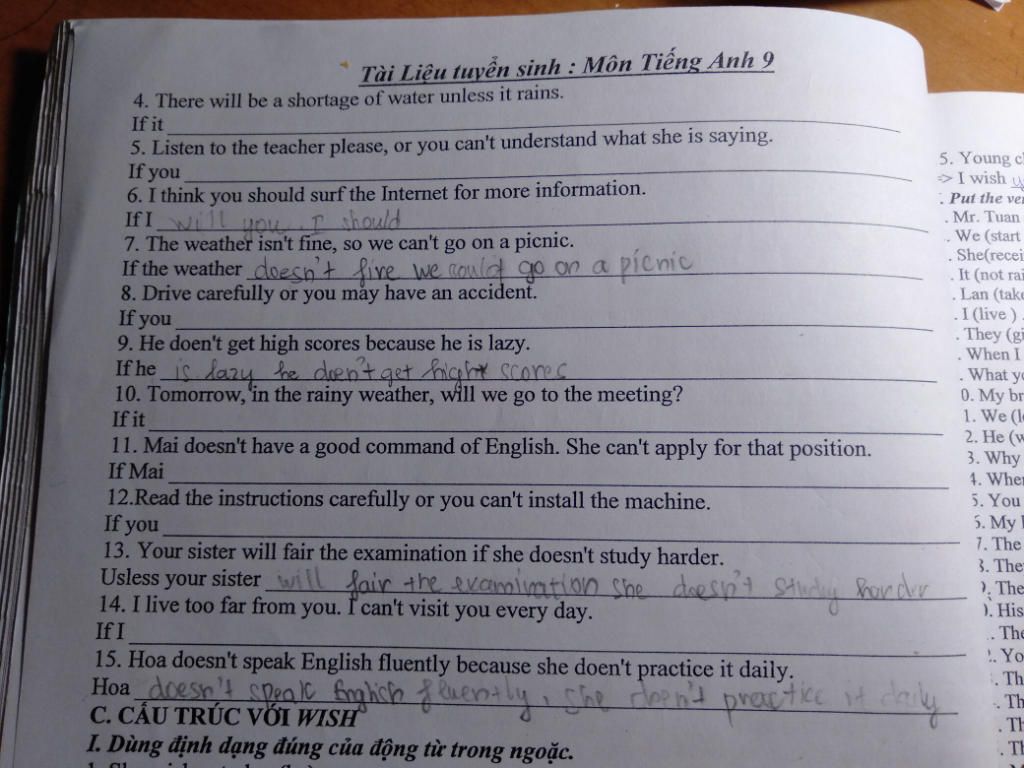 Tài Liệu tuyển sinh : Môn Tiếng Anh 9
4. There will be a shortage of water unless it rains.
If it
5. Listen to the teacher please, or you can't understand what she is saying.
If you
6. I think you should surf the Internet for more information.
If I will you I should
7. The weather isn't fine, so we can't go on a picnic.
If the weather doesn't fire we could go on a picnic
8. Drive carefully or you may have an accident.
If you
9. He doen't get high scores because he is lazy.
If he is lazy he doen't get hight scores
10. Tomorrow, in the rainy weather, will we go to the meeting?
If it
11. Mai doesn't have a good command of English. She can't apply for that position.
If Mai
12.Read the instructions carefully or you can't install the machine.
If you
13. Your sister will fair the examination if she doesn't study harder.
Usless your sister will fair the examination she doesn't study harder
14. I live too far from you. I can't visit you every day.
If I
15. Hoa doesn't speak English fluently because she doen't practice it daily.
Hoa doesn't speak English fluently, she doen't practice it daily
C. CẤU TRÚC VỚI WISH
I. Dùng định dạng đúng của động từ trong ngoặc.
5. Young
=> I wish
. Put the
. Mr. Tuan
. We (start
. She(recei
. It (not rai
. Lan (take
. I (live )
. They (gi
. When I
. What yo
0. My br
1. We (l
2. He (w
3. Why
4. Whe
5. You
5. My
7. The
3. The
. The
). His
. The
. Yo
. Th
. Th
. Th
. Th